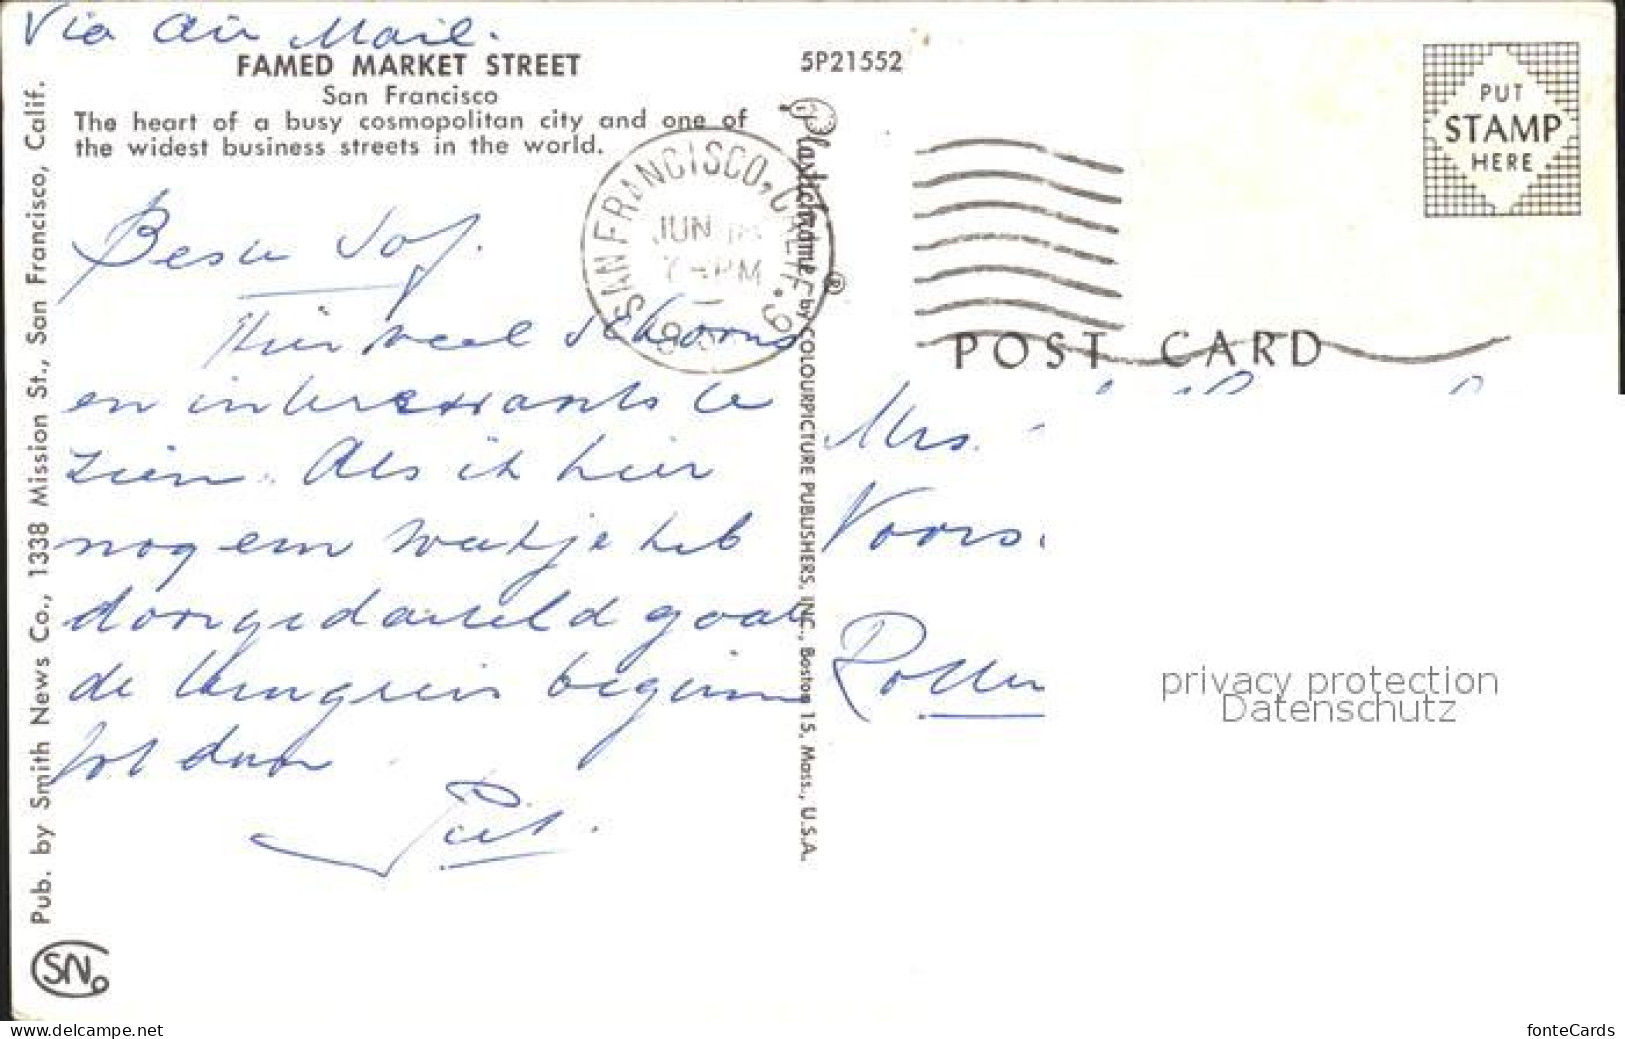 Via Air Mail.
FAMED MARKET STREET
San Francisco
The heart of a busy cosmopolitan city and one of
the widest business streets in the world.
5P21552
PUT
STAMP
HERE
SAN FRANCISCO, CALIF.
JUN
PM
Plastichrome ® by COLOURPICTURE PUBLISHERS, INC., Boston 15, Mass., U.S.A.
Pub. by Smith News Co., 1338 Mission St., San Francisco, Calif.
POST CARD
Beste Jos.
Hier veel schoons
en interessants te
zien. Als ik hier
nog een weekje heb
doorgedarteld gaat
de terugreis beginnen
Tot dan
Piet.
Mrs.
Voors.
Rotter
privacy protection
Datenschutz
SN
www.delcampe.net
fonteCards